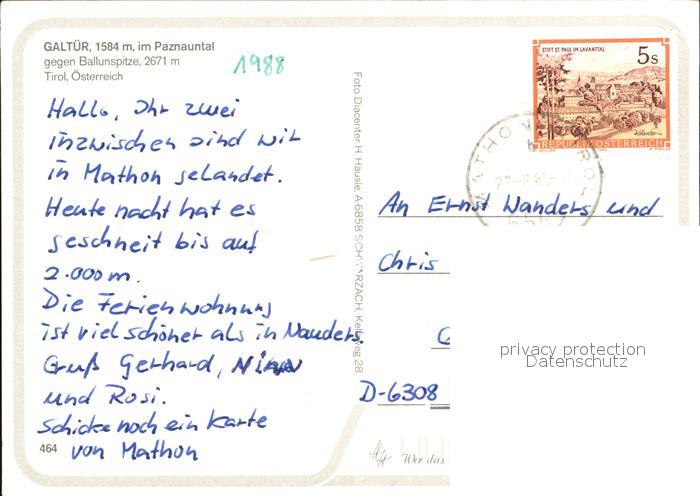 GALTÜR, 1584 m, im Paznauntal
gegen Ballunspitze, 2671 m
Tirol, Österreich
1988
Hallo, Ihr zwei
inzwischen sind wir
in Mathon gelandet.
Heute nacht hat es
geschneit bis auf
2.000 m.
Die Ferienwohnung
ist viel schöner als in Nauders.
Gruß Gerhard,
und Rosi.
Schicke noch ein Karte
von Mathon
464
Foto Diacenter H. Häusle, A-6858 SCHWARZACH, 28
STIFT ST. PAUL IM LAVANTTAL
5 S
REPUBLIK ÖSTERREICH
MATHON TIROL
An Ernst Wanders und
Chris
D-6308
Wer das
privacy protection
Datenschutz